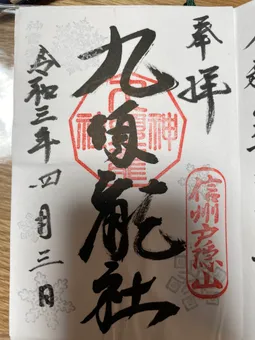 奉拝
信州戸隠山
九頭龍社
令和三年四月三日